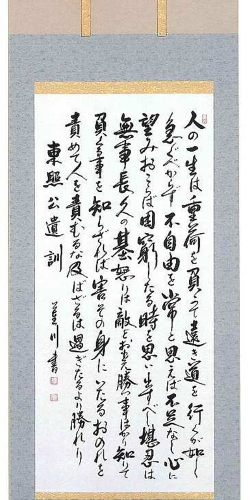 人の一生は重荷を負うて遠き道を行くが如し
急ぐべからず不自由を常と思えば不足なし心に
望みおこらば困窮したる時を思い出すべし堪忍は
無事長久の基怒りは敵とおもえ勝つ事ばかり知りて
負くる事を知らざれば害その身にいたるおのれを
責めて人を責むるな及ばざるは過ぎたるより勝れり
東照公遺訓
川書